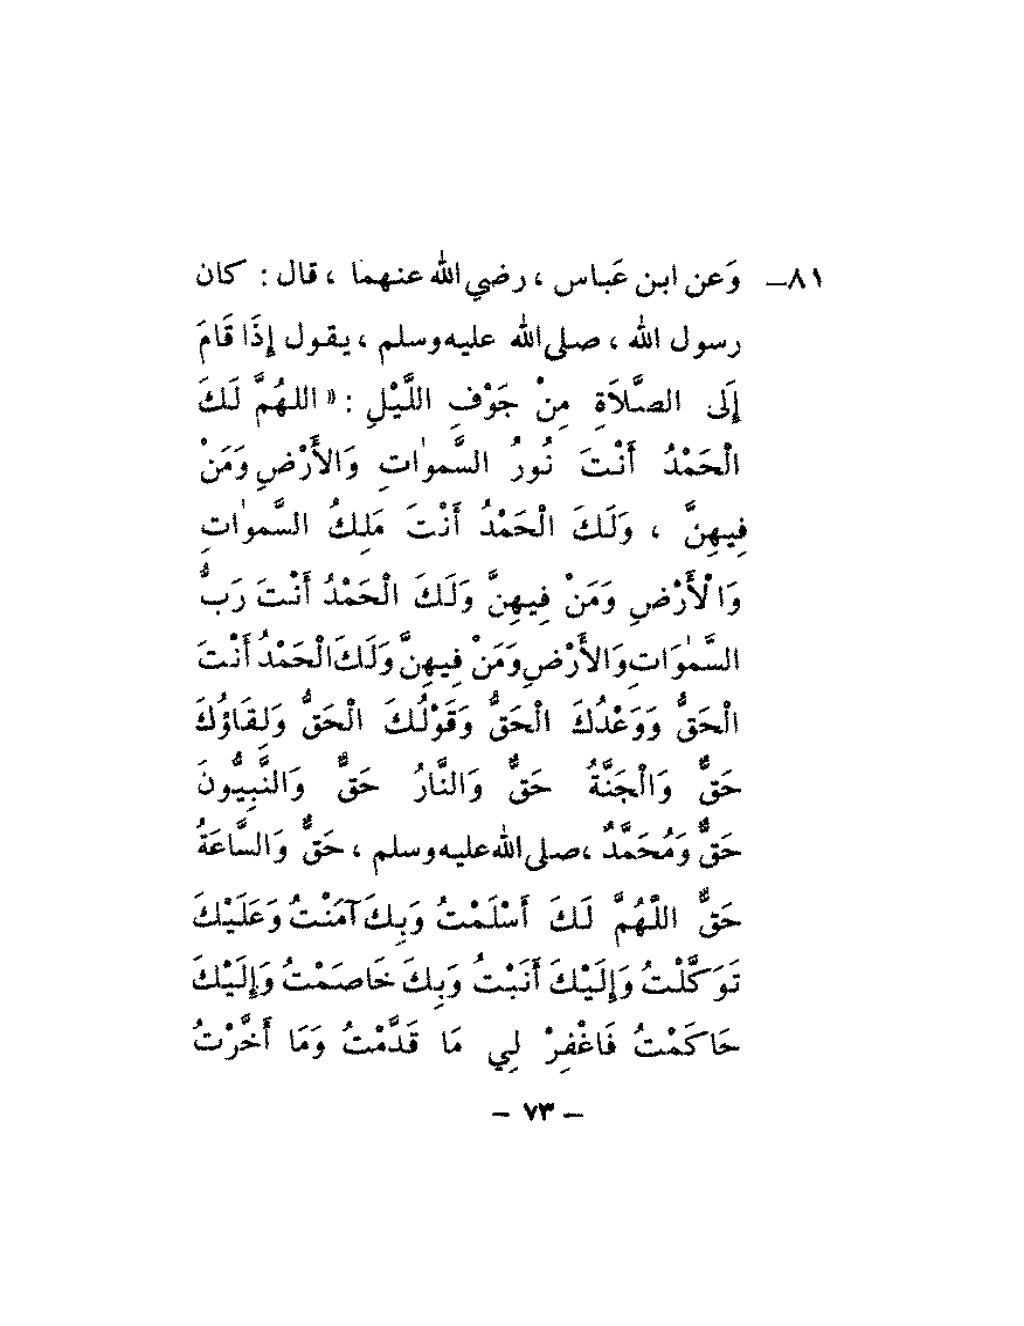 ٨١ـ وَعن ابن عَباس ، رضي الله عنهما ، قال : كان
رسول الله ، صلى الله عليه وسلم ، يقول إِذَا قَامَ
إِلَى الصَّلاَةِ مِنْ جَوْفِ اللَّيْلِ : « اللهُمَّ لَكَ
الْحَمْدُ أَنْتَ نُورُ السَّموٰاتِ وَالأَرْضِ وَمَنْ
فِيهِنَّ ، وَلَكَ الْحَمْدُ أَنْتَ مَلِكُ السَّموٰاتِ
وَالْأَرْضِ وَمَنْ فِيهِنَّ وَلَكَ الْحَمْدُ أَنْتَ رَبُّ
السَّمٰوَاتِ وَالأَرْضِ وَمَنْ فِيهِنَّ وَلَكَ الْحَمْدُ أَنْتَ
الْحَقُّ وَوَعْدُكَ الْحَقُّ وَقَوْلُكَ الْحَقُّ وَلِقَاؤُكَ
حَقٌّ وَالْجَنَّةُ حَقٌّ وَالنَّارُ حَقٌّ وَالنَّبِيُّونَ
حَقٌّ وَمُحَمَّدٌ ، صلى الله عليه وسلم ، حَقٌّ وَالسَّاعَةُ
حَقٌّ اللَّهُمَّ لَكَ أَسْلَمْتُ وَبِكَ آمَنْتُ وَعَلَيْكَ
تَوَكَّلْتُ وَإِلَيْكَ أَنَبْتُ وَبِكَ خَاصَمْتُ وَإِلَيْكَ
حَاكَمْتُ فَاغْفِرْ لِي مَا قَدَّمْتُ وَمَا أَخَّرْتُ
– ٧٣ –